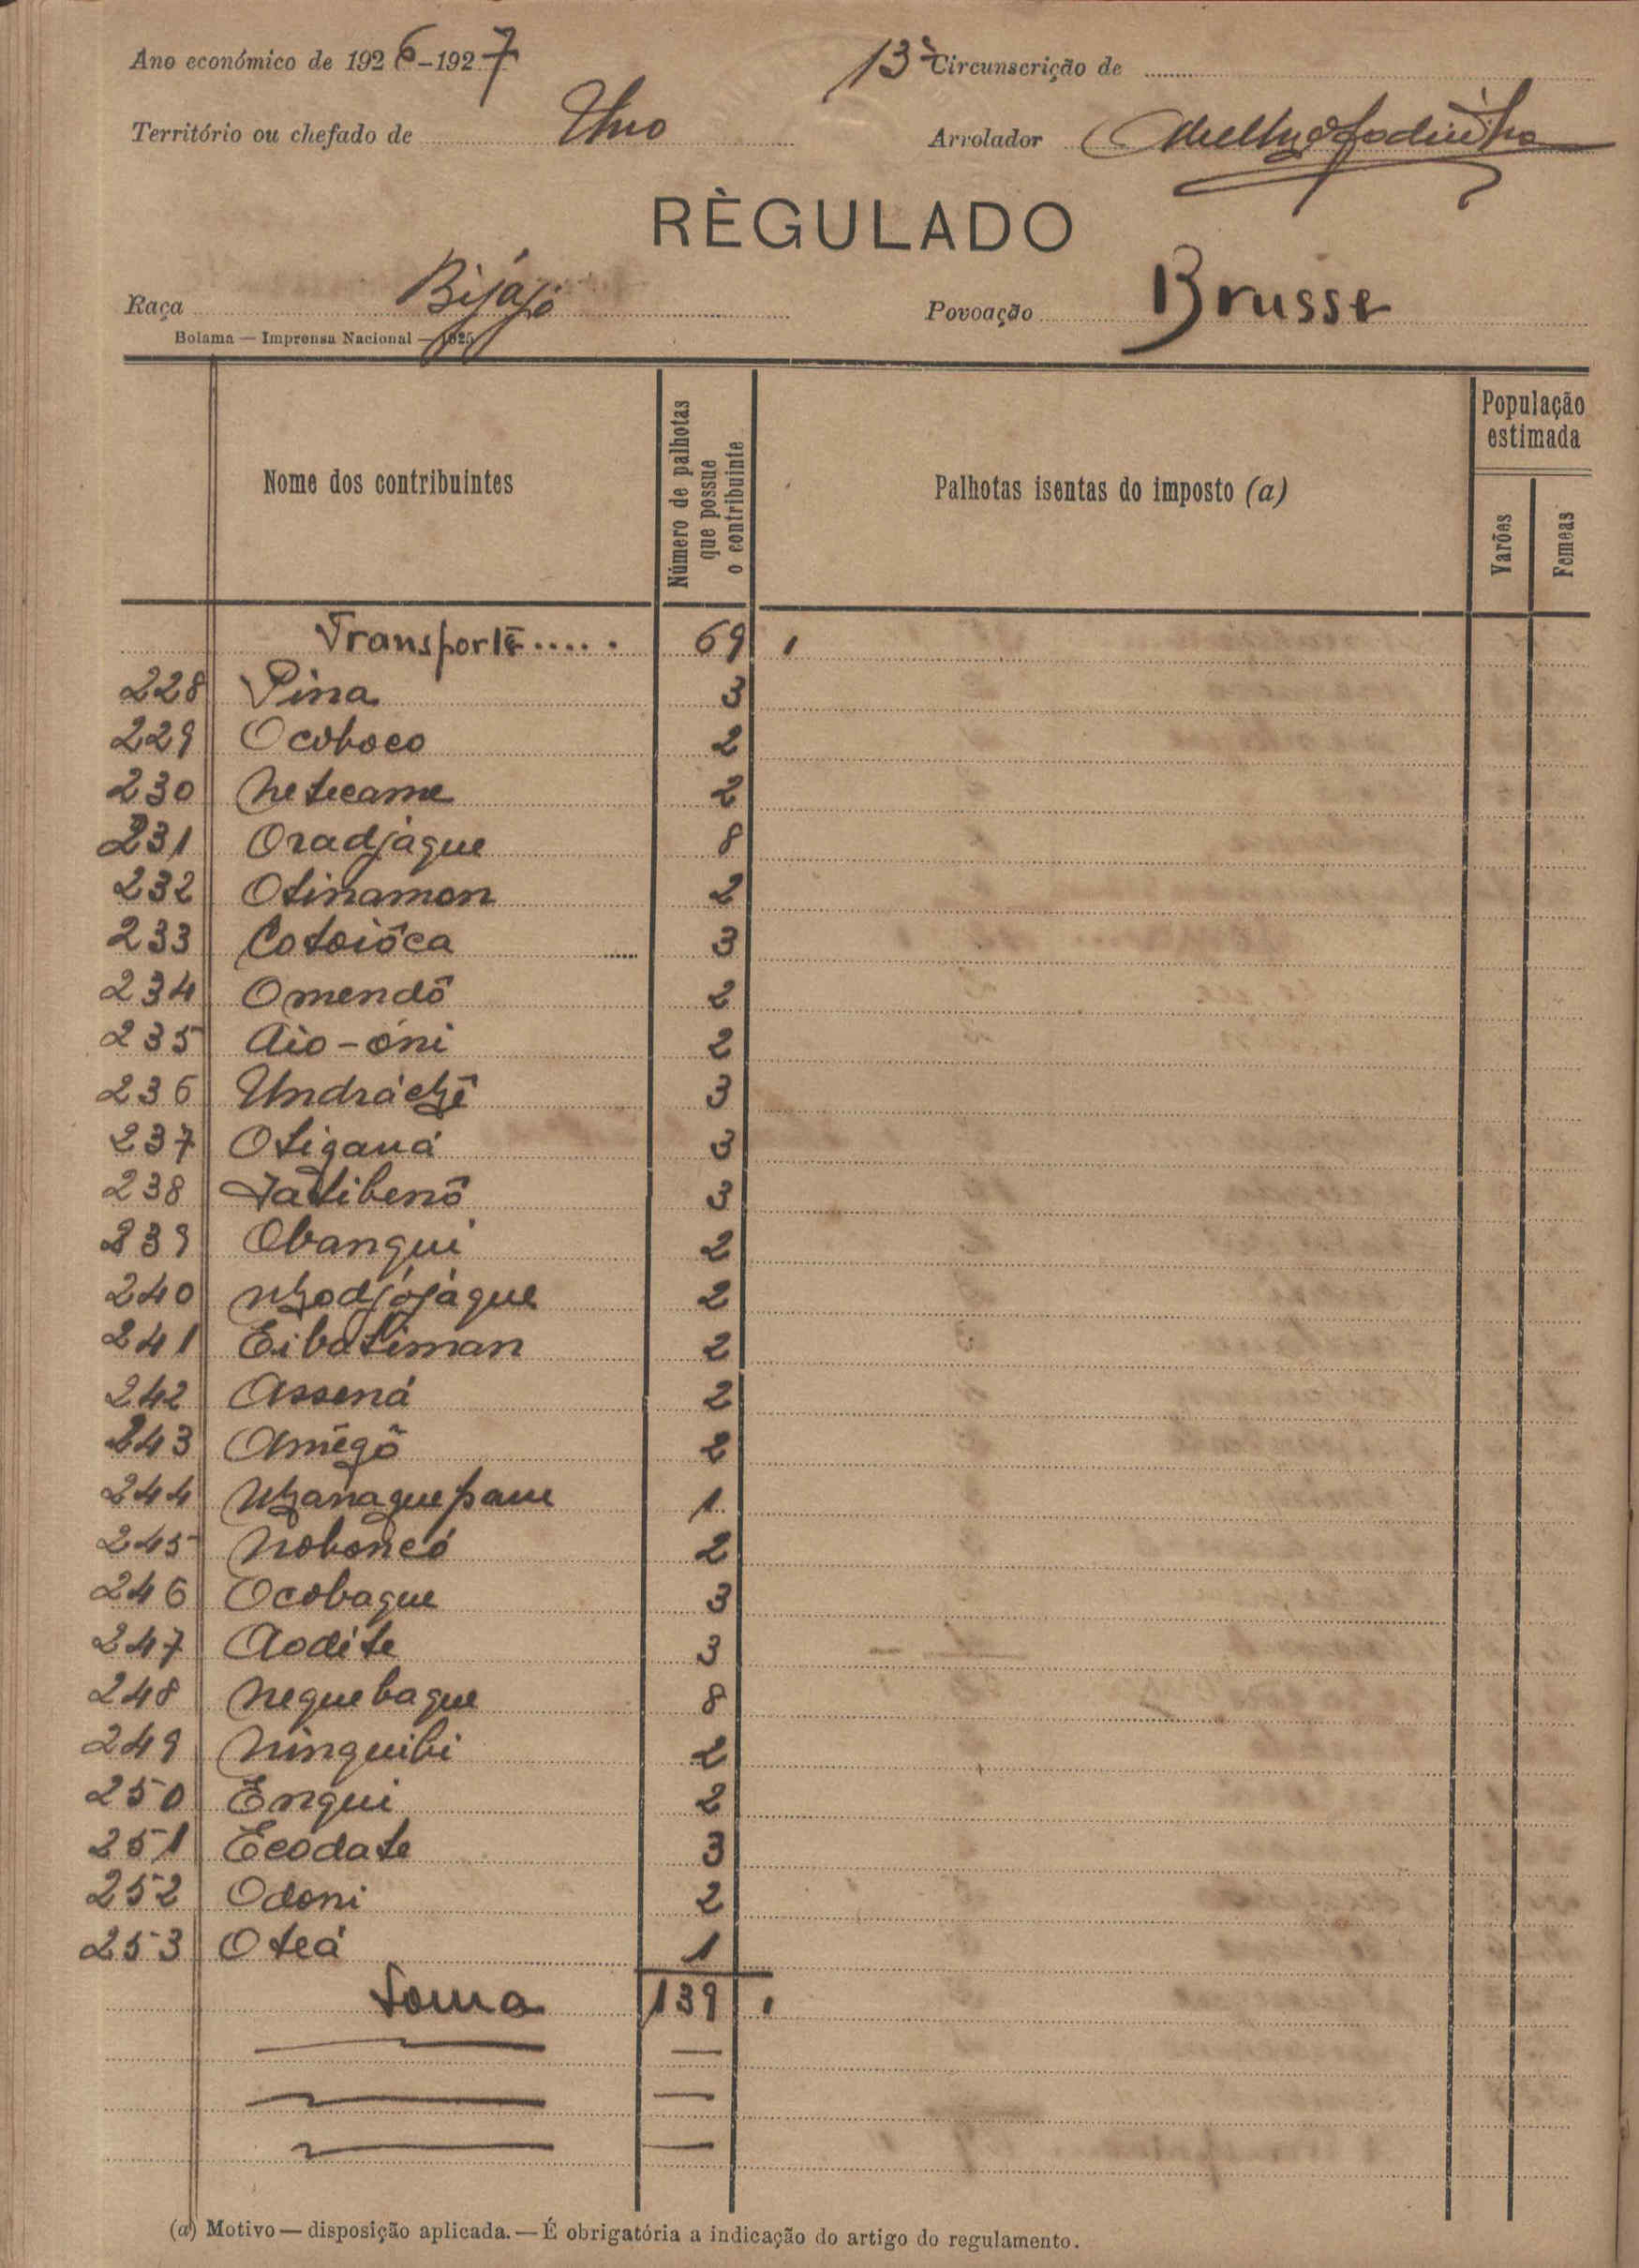 Ano económico de 1926-1927
13ª Circunscrição de
Território ou chefado de Uno
Arrolador
RÈGULADO
Raça Bijájó
Povoação Brusse
Bolama — Imprensa Nacional — 1925
Nome dos contribuintes
Número de palhotas que possue o contribuinte
Palhotas isentas do imposto (a)
População estimada
Varões
Femeas
Transporte..... 69
228 Pina 3
229 Ocoboco 2
230 Netecame 2
231 Oradjáque 8
232 Otinamon 2
233 Cotoiôca 3
234 Omendô 2
235 Aio-óni 2
236 Undráchê 3
237 Otiganá 3
238 Tatibenô 3
239 Obangui 2
240 Nhodjójáque 2
241 Eibatiman 2
242 Assená 2
243 Amêgô 2
244 Nhanaquepane 1
245 Noboncó 2
246 Ocobaque 3
247 Aodite 3
248 Nequebaque 8
249 Ninquibi 2
250 Enqui 2
251 Ecodate 3
252 Odoni 2
253 Oteá 1
Soma 139
(a) Motivo — disposição aplicada. — É obrigatória a indicação do artigo do regulamento.